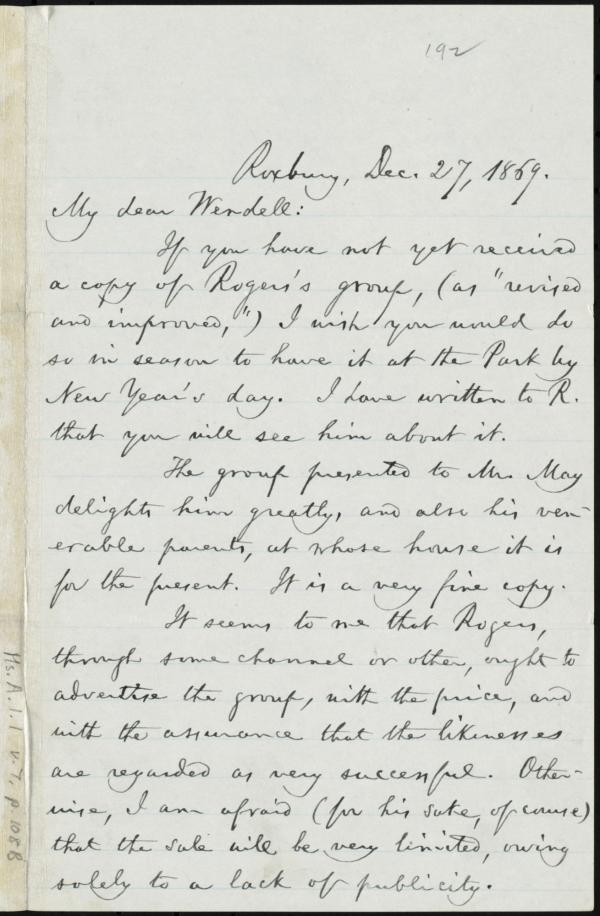 192
Roxbury, Dec. 27, 1869.
My dear Wendell:
If you have not yet received
a copy of Rogers's group, (as "revised
and improved,") I wish you would do
so in season to have it at the Park by
New Year's day. I have written to R.
that you will see him about it.
The group presented to Mr. May
delights him greatly, and also his ven-
erable parents, at whose house it is
for the present. It is a very fine copy.
It seems to me that Rogers,
through some channel or other, ought to
advertise the group, with the price, and
with the assurance that the likenesses
are regarded as very successful. Other-
wise, I am afraid (for his sake, of course)
that the sale will be very limited, owing
solely to a lack of publicity.
Ms. A. 1. 1 v. 7, p. 108B